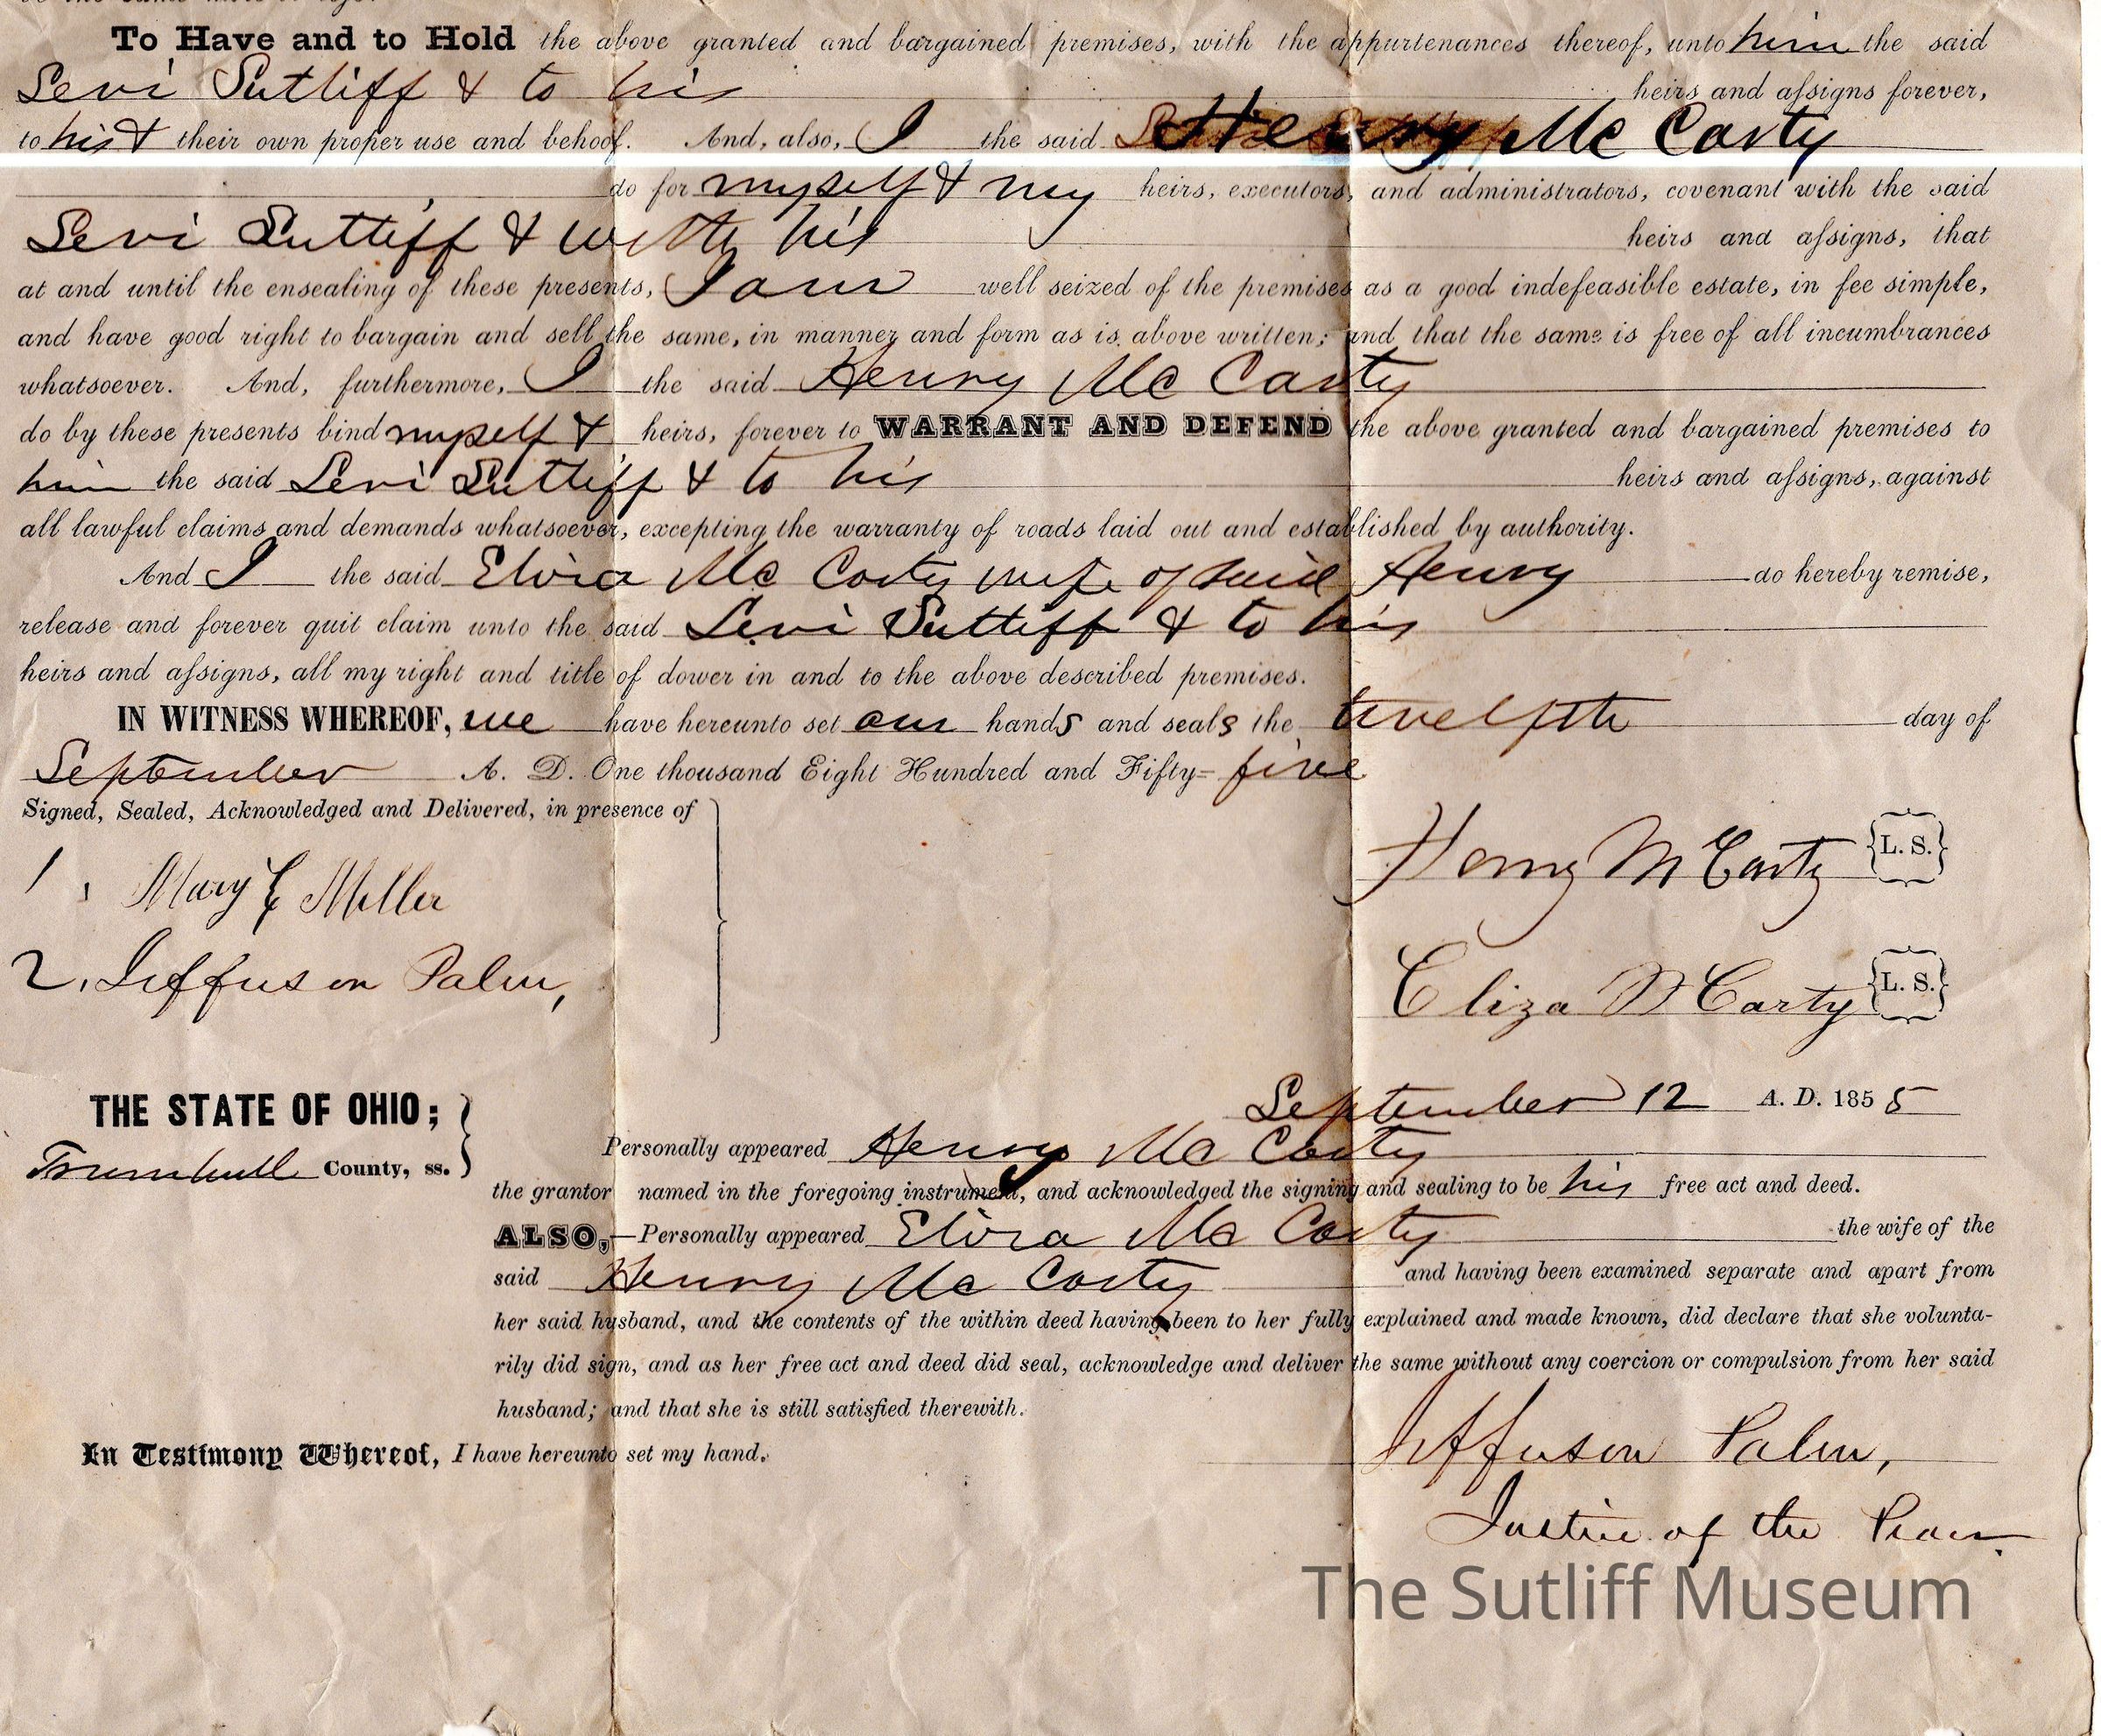 To Have and to Hold the above granted and bargained premises, with the appurtenances thereof, unto him the said
Levi Sutliff & to his heirs and aſsigns forever,
to his & their own proper use and behoof. And, also, I the said Henry Mc Carty
do for myself & my heirs, executors, and administrators, covenant with the said
Levi Sutliff & with his heirs and aſsigns, that
at and until the ensealing of these presents, I am well seized of the premises as a good indefeasible estate, in fee simple,
and have good right to bargain and sell the same, in manner and form as is above written; and that the same is free of all incumbrances
whatsoever. And, furthermore, I the said Henry Mc Carty
do by these presents bind myself & heirs, forever to WARRANT AND DEFEND the above granted and bargained premises to
him the said Levi Sutliff & to his heirs and aſsigns, against
all lawful claims and demands whatsoever, excepting the warranty of roads laid out and established by authority.
And I the said Elvira Mc Carty wife of said Henry do hereby remise,
release and forever quit claim unto the said Levi Sutliff & to his
heirs and aſsigns, all my right and title of dower in and to the above described premises.
IN WITNESS WHEREOF, we have hereunto set our hands and seals the twelfth day of
September A. D. One thousand Eight Hundred and Fifty=five
Signed, Sealed, Acknowledged and Delivered, in presence of
Henry McCarty {L. S.}
1, Mary E Miller
2, Jefferson Palm,
Eliza McCarty {L. S.}
September 12 A. D. 1855
THE STATE OF OHIO; }
Trumbull County, ss. }
Personally appeared Henry Mc Carty
the grantor named in the foregoing instrument, and acknowledged the signing and sealing to be his free act and deed.
ALSO,—Personally appeared Elvira Mc Carty the wife of the
said Henry Mc Carty and having been examined separate and apart from
her said husband, and the contents of the within deed having been to her fully explained and made known, did declare that she volunta-
rily did sign, and as her free act and deed did seal, acknowledge and deliver the same without any coercion or compulsion from her said
husband; and that she is still satisfied therewith.
In Testimony Whereof, I have hereunto set my hand.
Jefferson Palm,
Justice of the Peace.
The Sutliff Museum